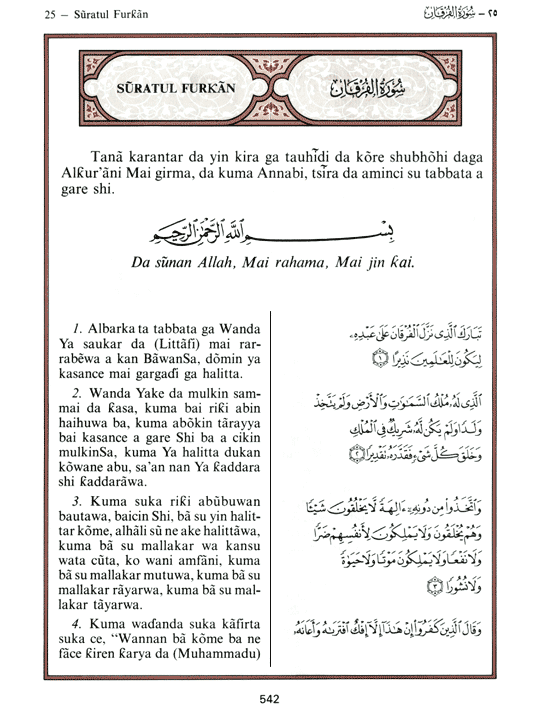 25 — Sũratul Furƙãn
٢٥ — سُورَةُ الفُرْقَانِ
SŨRATUL FURƘÃN
سُورَةُ الفُرْقَانِ
Tanã karantar da yin kira ga tauhĩdi da kõre shubhõhi daga
Alƙur'ãni Mai girma, da kuma Annabi, tsĩra da aminci su tabbata a
gare shi.
بِسْمِ اللَّهِ الرَّحْمَٰنِ الرَّحِيمِ
Da sũnan Allah, Mai rahama, Mai jin ƙai.
1. Albarka ta tabbata ga Wanda
Ya saukar da (Littãfi) mai rar-
rabẽwa a kan BãwanSa, dõmin ya
kasance mai gargaɗi ga halitta.
2. Wanda Yake da mulkin sam-
mai da ƙasa, kuma bai riƙi abin
haihuwa ba, kuma abõkin tãrayya
bai kasance a gare Shi ba a cikin
mulkinSa, kuma Ya halitta dukan
kõwane abu, sa'an nan Ya ƙaddara
shi ƙaddarãwa.
3. Kuma suka riƙi abũbuwan
bautawa, baicin Shi, bã su yin halit-
tar kõme, alhãli sũ ne ake halittãwa,
kuma bã su mallakar wa kansu
wata cũta, ko wani amfãni, kuma
bã su mallakar mutuwa, kuma bã su
mallakar rãyarwa, kuma bã su mal-
lakar tãyarwa.
4. Kuma waɗanda suka kãfirta
suka ce, "Wannan bã kõme ba ne
fãce ƙiren ƙarya da (Muhammadu)
تَبَارَكَ الَّذِي نَزَّلَ الْفُرْقَانَ عَلَىٰ عَبْدِهِ
لِيَكُونَ لِلْعَالَمِينَ نَذِيرًا ١
الَّذِي لَهُ مُلْكُ السَّمَاوَاتِ وَالْأَرْضِ وَلَمْ يَتَّخِذْ
وَلَدًا وَلَمْ يَكُن لَّهُ شَرِيكٌ فِي الْمُلْكِ
وَخَلَقَ كُلَّ شَيْءٍ فَقَدَّرَهُ تَقْدِيرًا ٢
وَاتَّخَذُوا مِن دُونِهِ ءَالِهَةً لَّا يَخْلُقُونَ شَيْئًا
وَهُمْ يُخْلَقُونَ وَلَا يَمْلِكُونَ لِأَنفُسِهِمْ ضَرًّا
وَلَا نَفْعًا وَلَا يَمْلِكُونَ مَوْتًا وَلَا حَيَوٰةً
وَلَا نُشُورًا ٣
وَقَالَ الَّذِينَ كَفَرُوا إِنْ هَٰذَا إِلَّا إِفْكٌ افْتَرَاهُ وَأَعَانَهُ
542